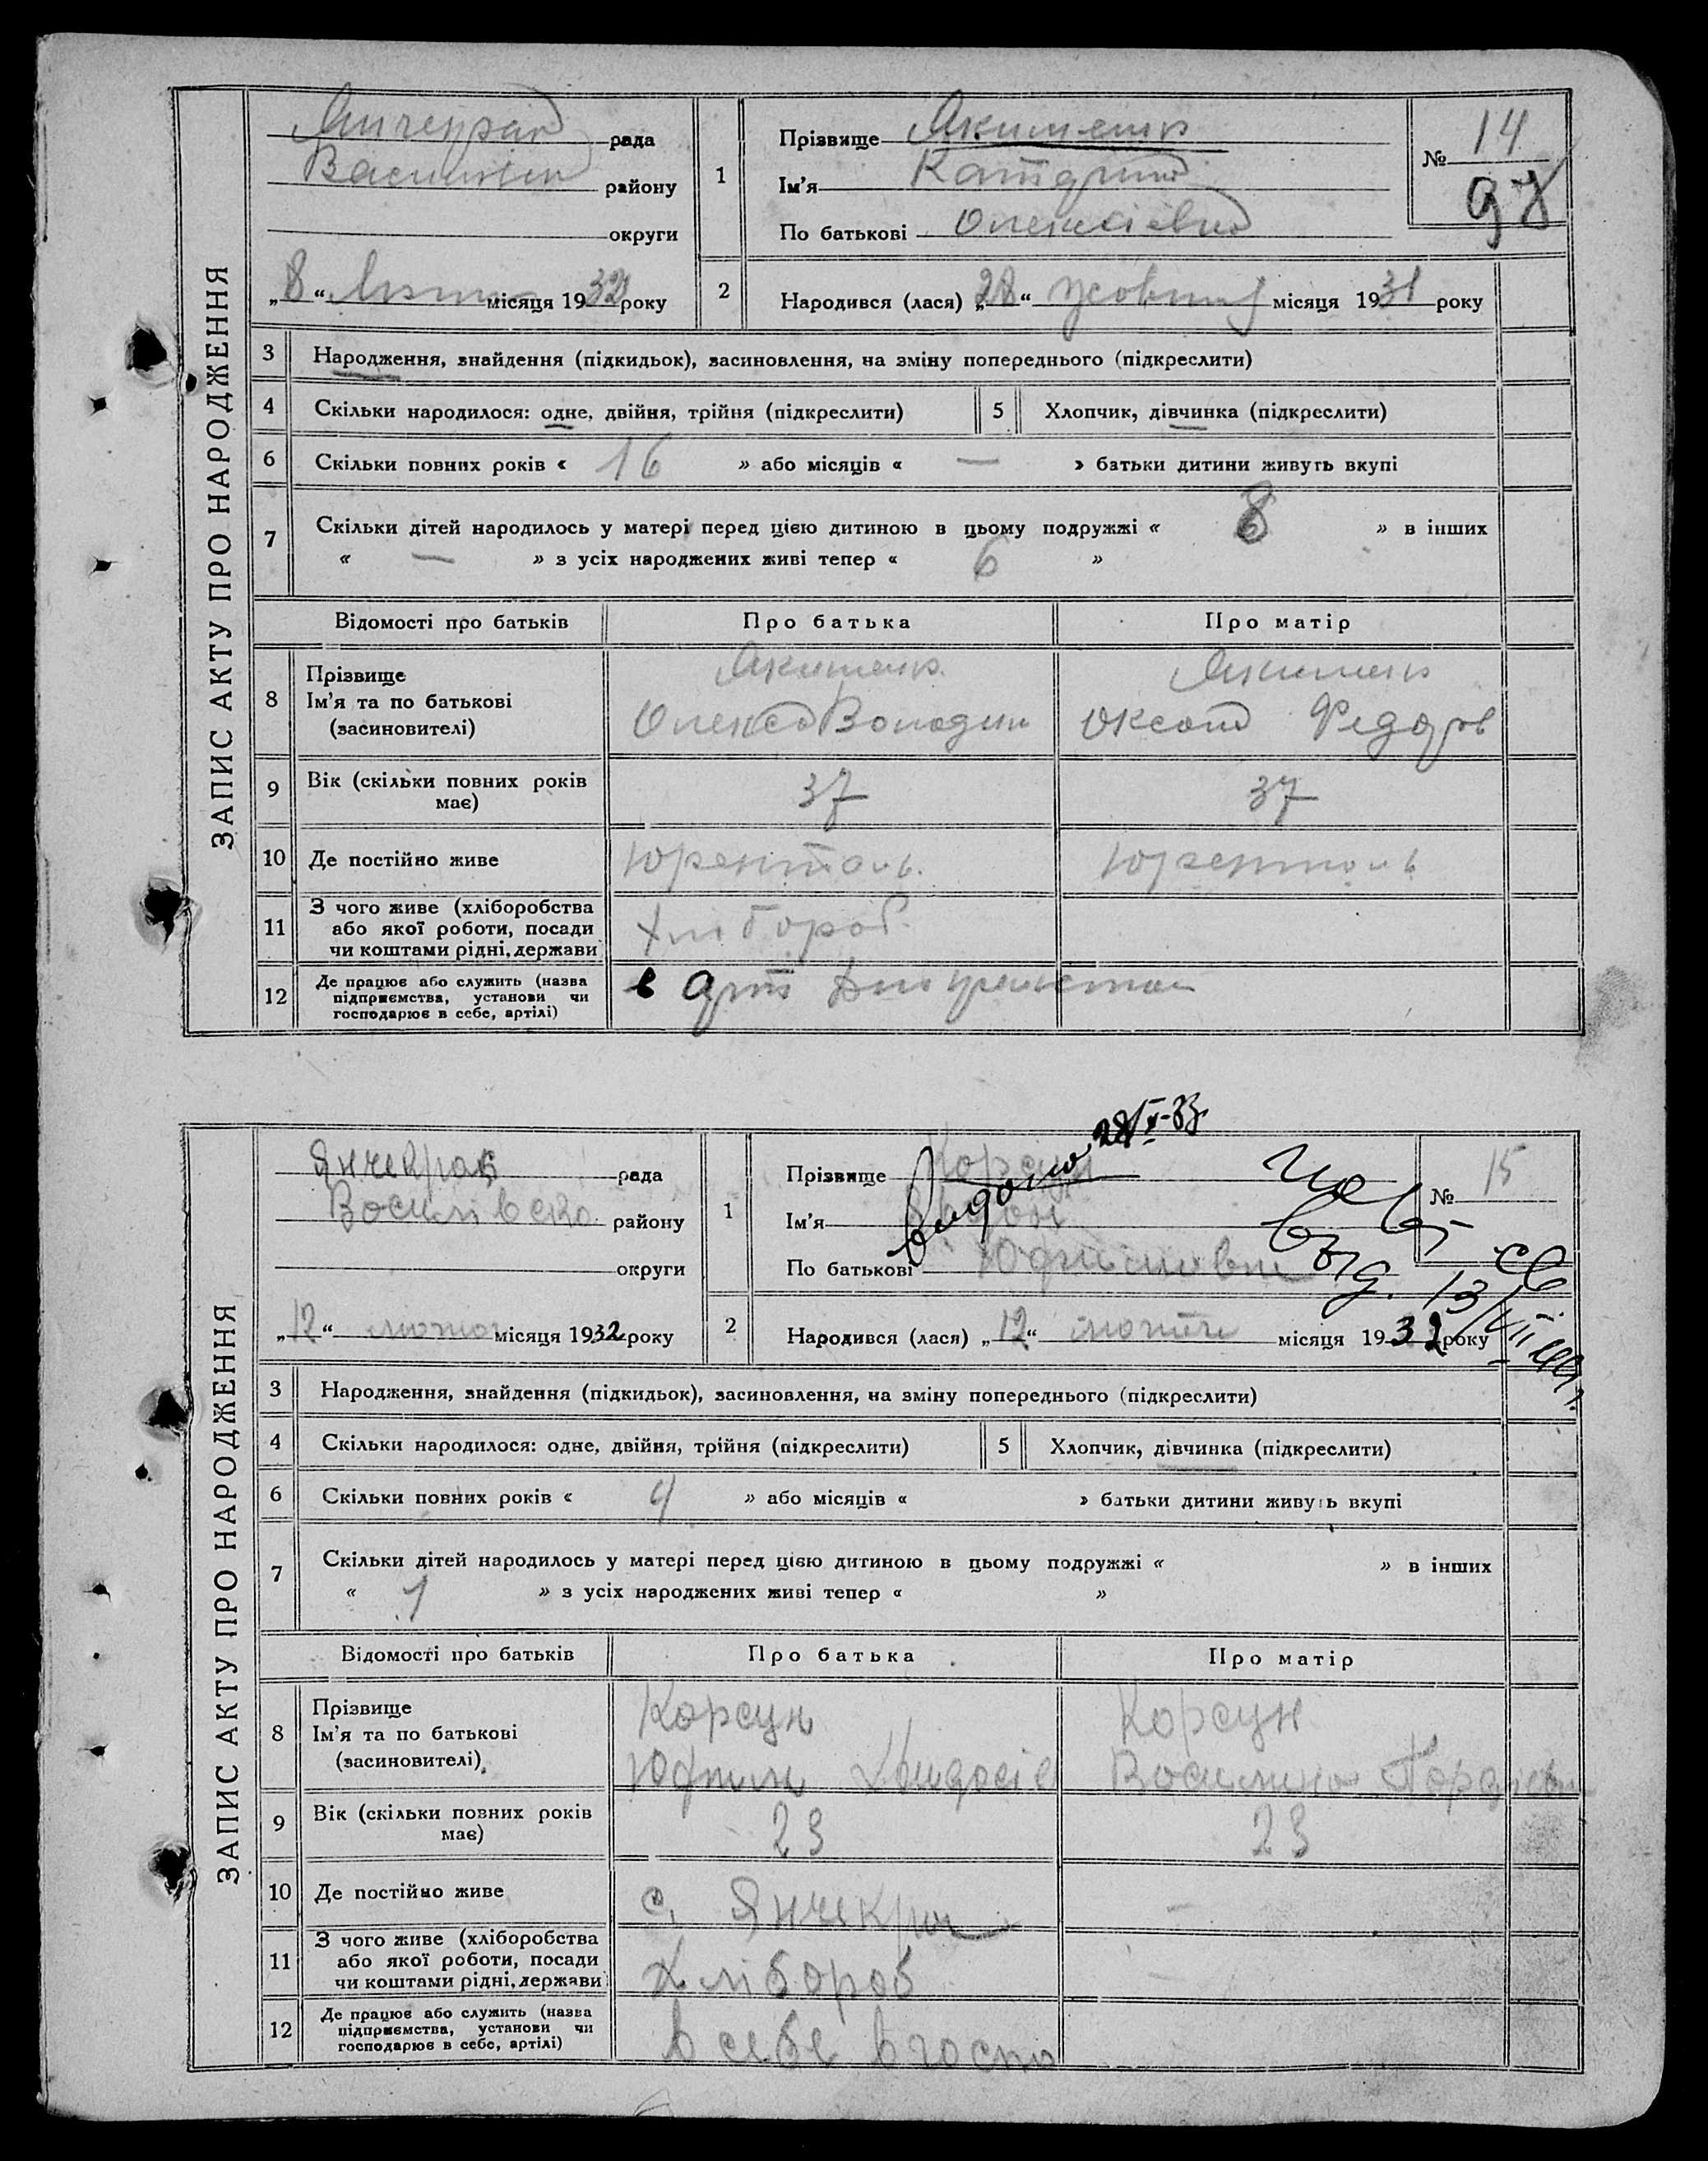 ЗАПИС АКТУ ПРО НАРОДЖЕННЯ
рада
району
округи
„8“ місяця 1932 року
1
Прізвище Якименко
Ім'я Катерина
По батькові Олексіївна
№ 14
97
2
Народився (лася) „28“ жовтня місяця 1931 року
3 Народження, знайдення (підкидьок), засиновлення, на зміну попереднього (підкреслити)
4 Скільки народилося: одне, двійня, трійня (підкреслити) 5 Хлопчик, дівчинка (підкреслити)
6 Скільки повних років « 16 » або місяців « — » батьки дитини живуть вкупі
7 Скільки дітей народилось у матері перед цією дитиною в цьому подружжі « 8 » в інших
« — » з усіх народжених живі тепер « 6 »
Відомості про батьків Про батька Про матір
8 Прізвище
Ім'я та по батькові
(засиновителі)
Якименко
Олекса Володим
Якименко
Оксана Федоров
9 Вік (скільки повних років має) 37 37
10 Де постійно живе
11 З чого живе (хліборобства
або якої роботи, посади
чи коштами рідні, держави
Хлібороб
12 Де працює або служить (назва
підприємства, установи чи
господарює в себе, артілі)
в арт
ЗАПИС АКТУ ПРО НАРОДЖЕННЯ
Янчекрак рада
Василівско району
округи
„12“ лютого місяця 1932 року
1
Прізвище Корсун
Ім'я
По батькові Юфимовна
№ 15
видано 28/X-33
2
Народився (лася) „12“ лютого місяця 1932 року
3 Народження, знайдення (підкидьок), засиновлення, на зміну попереднього (підкреслити)
4 Скільки народилося: одне, двійня, трійня (підкреслити) 5 Хлопчик, дівчинка (підкреслити)
6 Скільки повних років « 4 » або місяців « » батьки дитини живуть вкупі
7 Скільки дітей народилось у матері перед цією дитиною в цьому подружжі « » в інших
« 1 » з усіх народжених живі тепер « »
Відомості про батьків Про батька Про матір
8 Прізвище
Ім'я та по батькові
(засиновителі)
Корсун
Юфим
Корсун
Василина
9 Вік (скільки повних років має) 23 23
10 Де постійно живе с. Янчекрак —
11 З чого живе (хліборобства
або якої роботи, посади
чи коштами рідні, держави
Хлібороб
12 Де працює або служить (назва
підприємства, установи чи
господарює в себе, артілі)
в себе в госпо